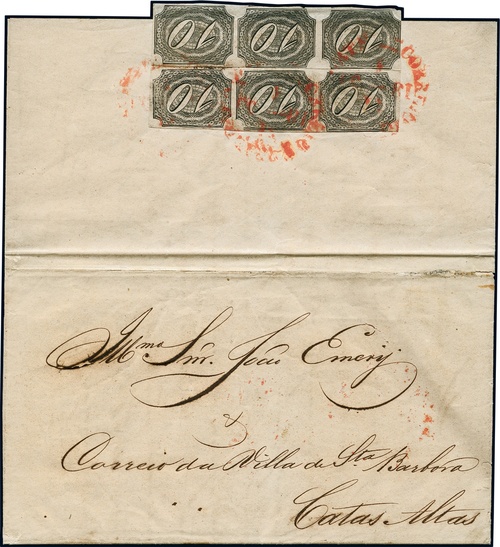 10 10 10
10 10 10
CORREIO
Illmo Snr. João Emery
Correio da Villa de Sta Barbora
Catas Altas